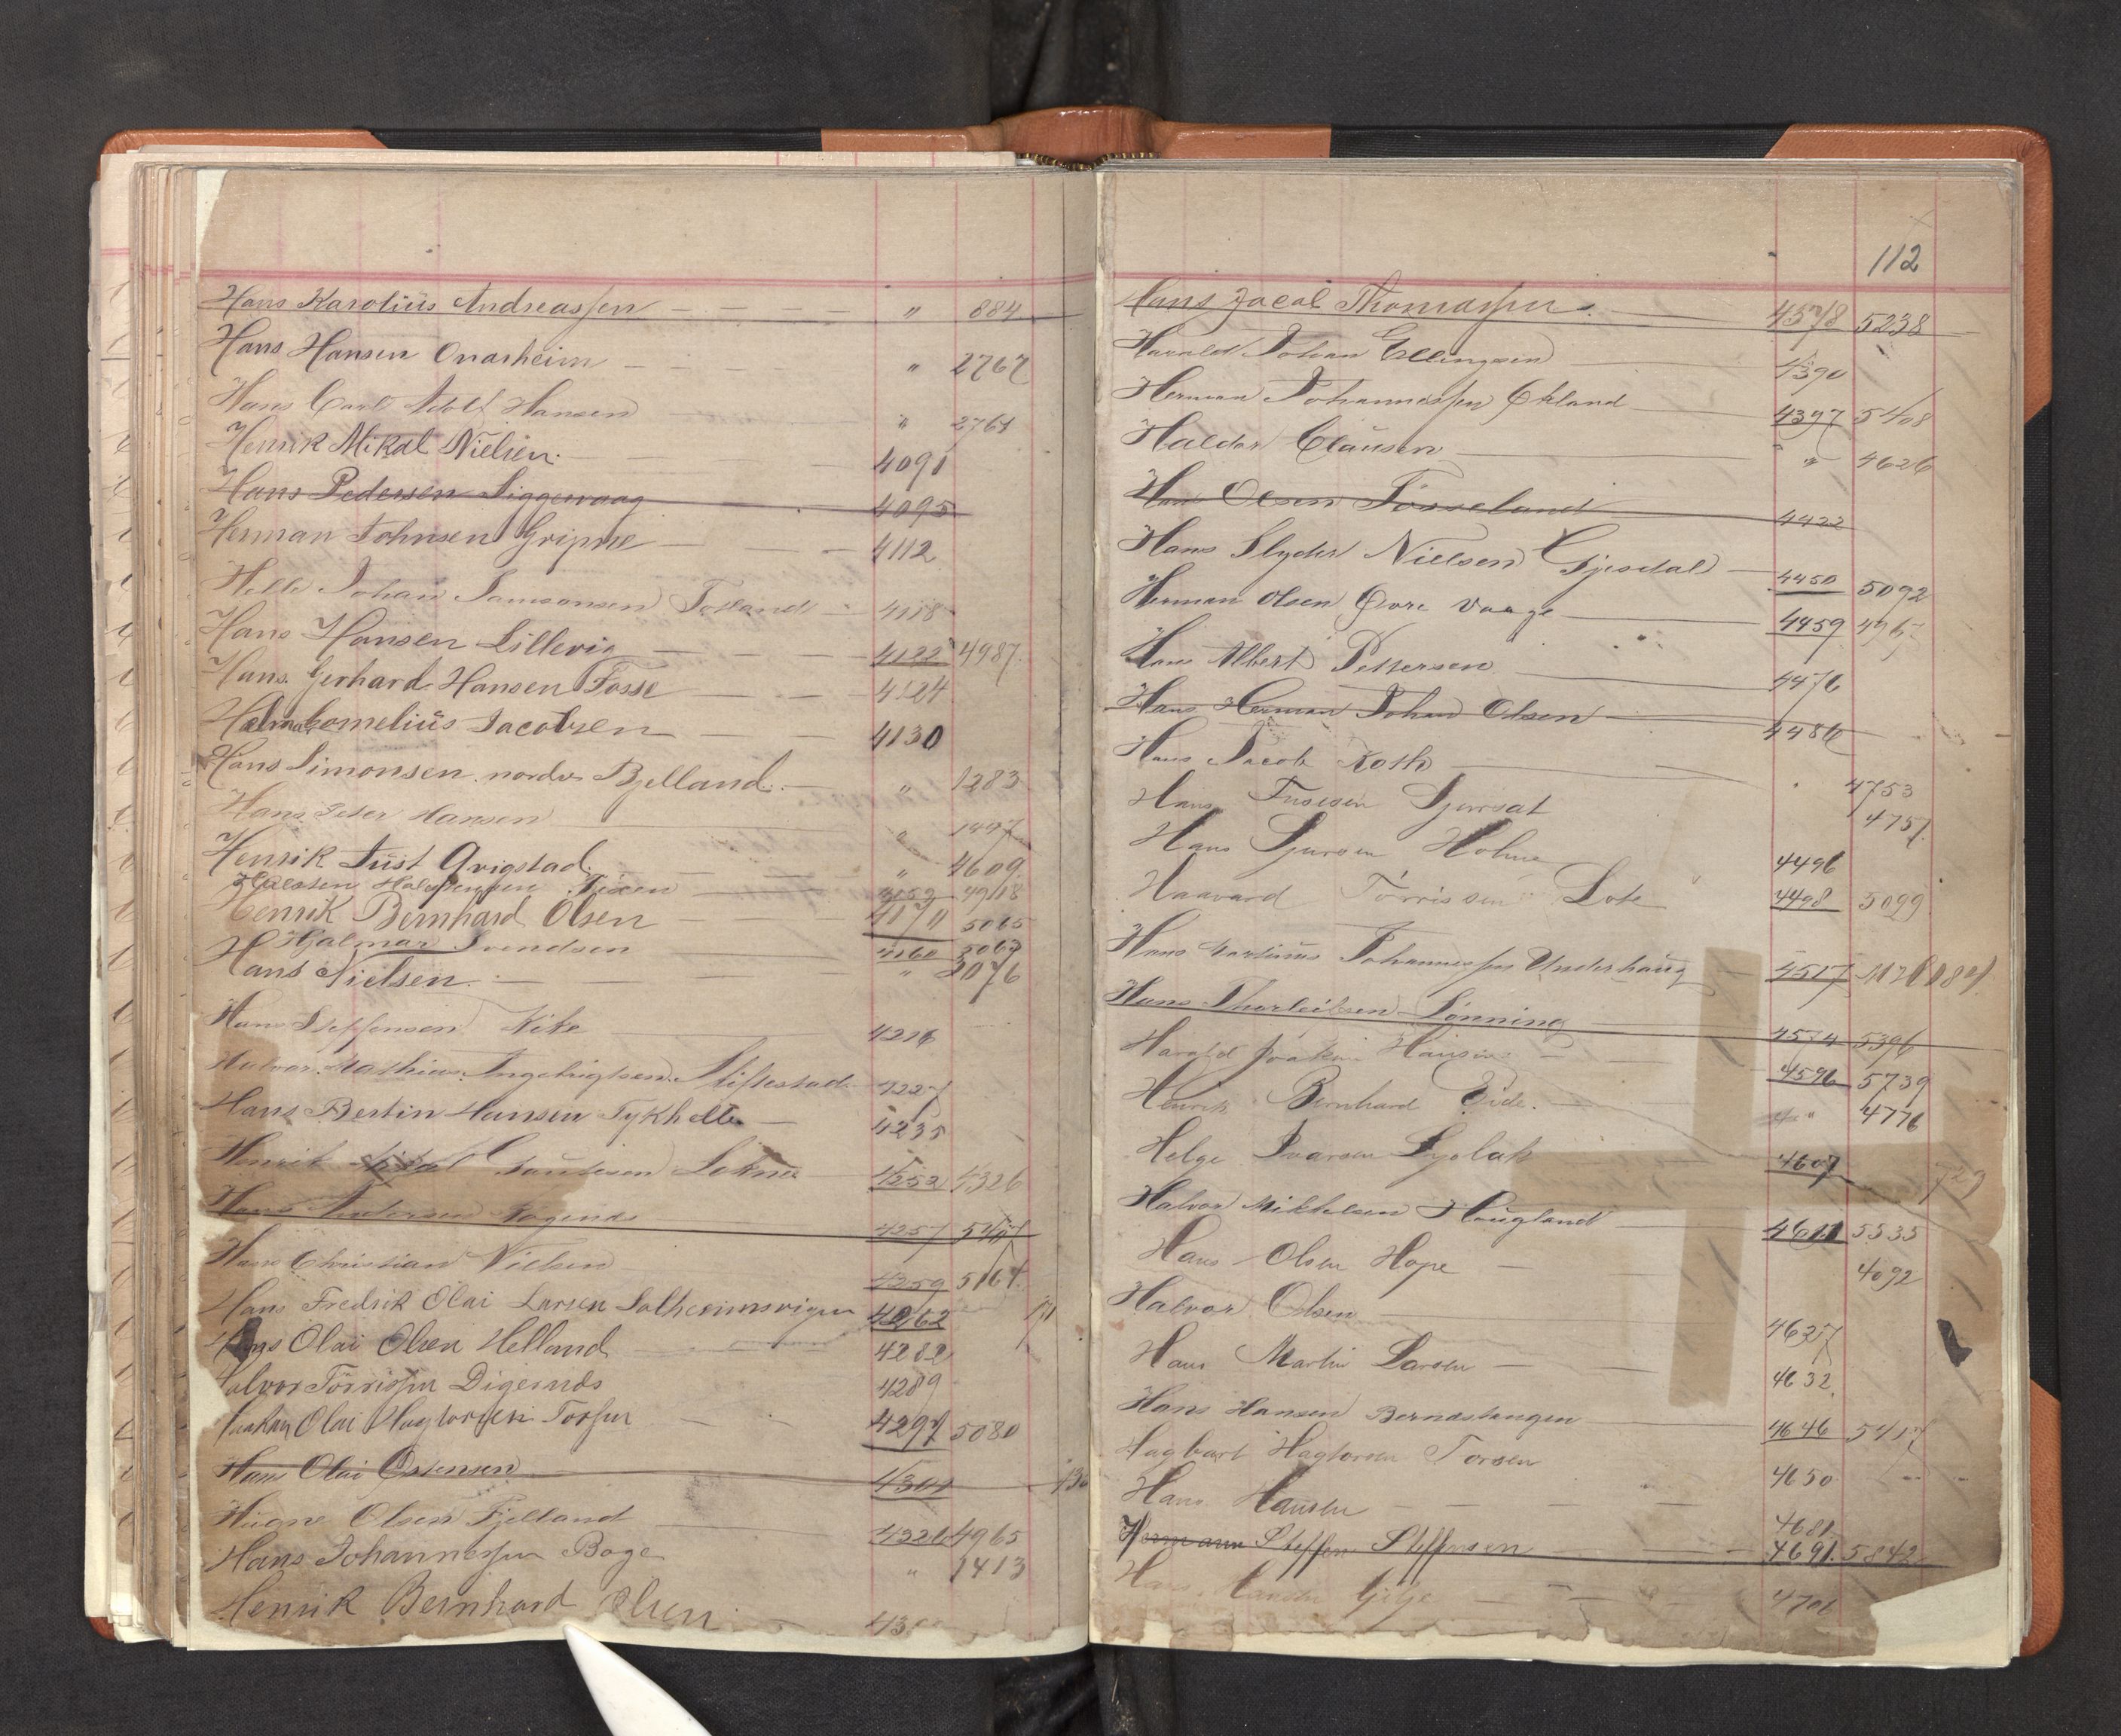 Hans Karolius Andreassen - - - - " 884
Hans Hansen Onarheim - - - - " 2767
Hans Carl Adolf Hansen " 2761
Henrik Mikal Nielsen 4091
Hans Pedersen Liggevaag 4095
Herman Johnsen Gripne 4112
Helle Johan Samsonsen Tosland 4118
Hans Hansen Lillevig 4122 4987
Hans Gerhard Hansen Fosse 4124
Cornelius Jacobsen 4130
Hans Simonsen nordre Bjelland " 1283
Hans Peter Hansen " 1447
Henrik Just Qvigstad " 4609
4152 4918
Henrik Bernhard Olsen 5065
Hjalmar Svendsen 4160 5063
Hans Nielsen "
Hans Steffensen 4216
Halvor Mathias Ingebrigtsen 4227
Hans Bertin Hansen Tykhelle 4235
Henrik 4252 4326
Hans Andersen 4257
Hans Christian Nielsen 4259 5164
Hans Fredrik Olai Larsen Solheimsvigen 4262
Hans Olai Olsen Helland 4282
Halvor Törrissen Digernæs 4289
Haakon Olai Hagtorsen Torsen 4297 5080
Hans Olai Østensen 4304
Olsen Fjelland 4965
Hans Johannessen Boge " 1413
Henrik Bernhard Olsen
112
Hans Jacob Thomassen 4578 5238
Harald Johan Ellingsen 4390
Herman Johannessen Økland 4397 5408
Haldor Clausen " 4626
Hans Olsen Fosseland 4422
Hans Slyder Nielsen Gjesdal 4450 5092
Herman Olsen Øvre Vaage 4459
Hans Albert Pettersen 4476
Hans Herman Johan Olsen 4486
Hans Jacob Roth 4753
Hans 4757
Hans Sjursen Holme 4496
Haavard Törrissen Lote 4498 5099
Hans Martinus Johannessen Underhaug 4517
Hans Thorleifsen Lönning 4574 5396
Harald Joakim Hansen 4596 5739
Henrik Bernhard Eide " 4776
Helge Ivarsen 4607 729
Halvor Mikkelsen Hougland 4611 5535
Hans Olsen Hope 4092
Halvor Olsen 4627
Hans Martin Larsen 4632
Hans Hansen Bernastangen 4646
Hagbart Hagtorsen Torsen 4650
Hans Hansen 4681
Hermann Steffen Steffensen 4691 5842
Hans Hansen Gilje 4706